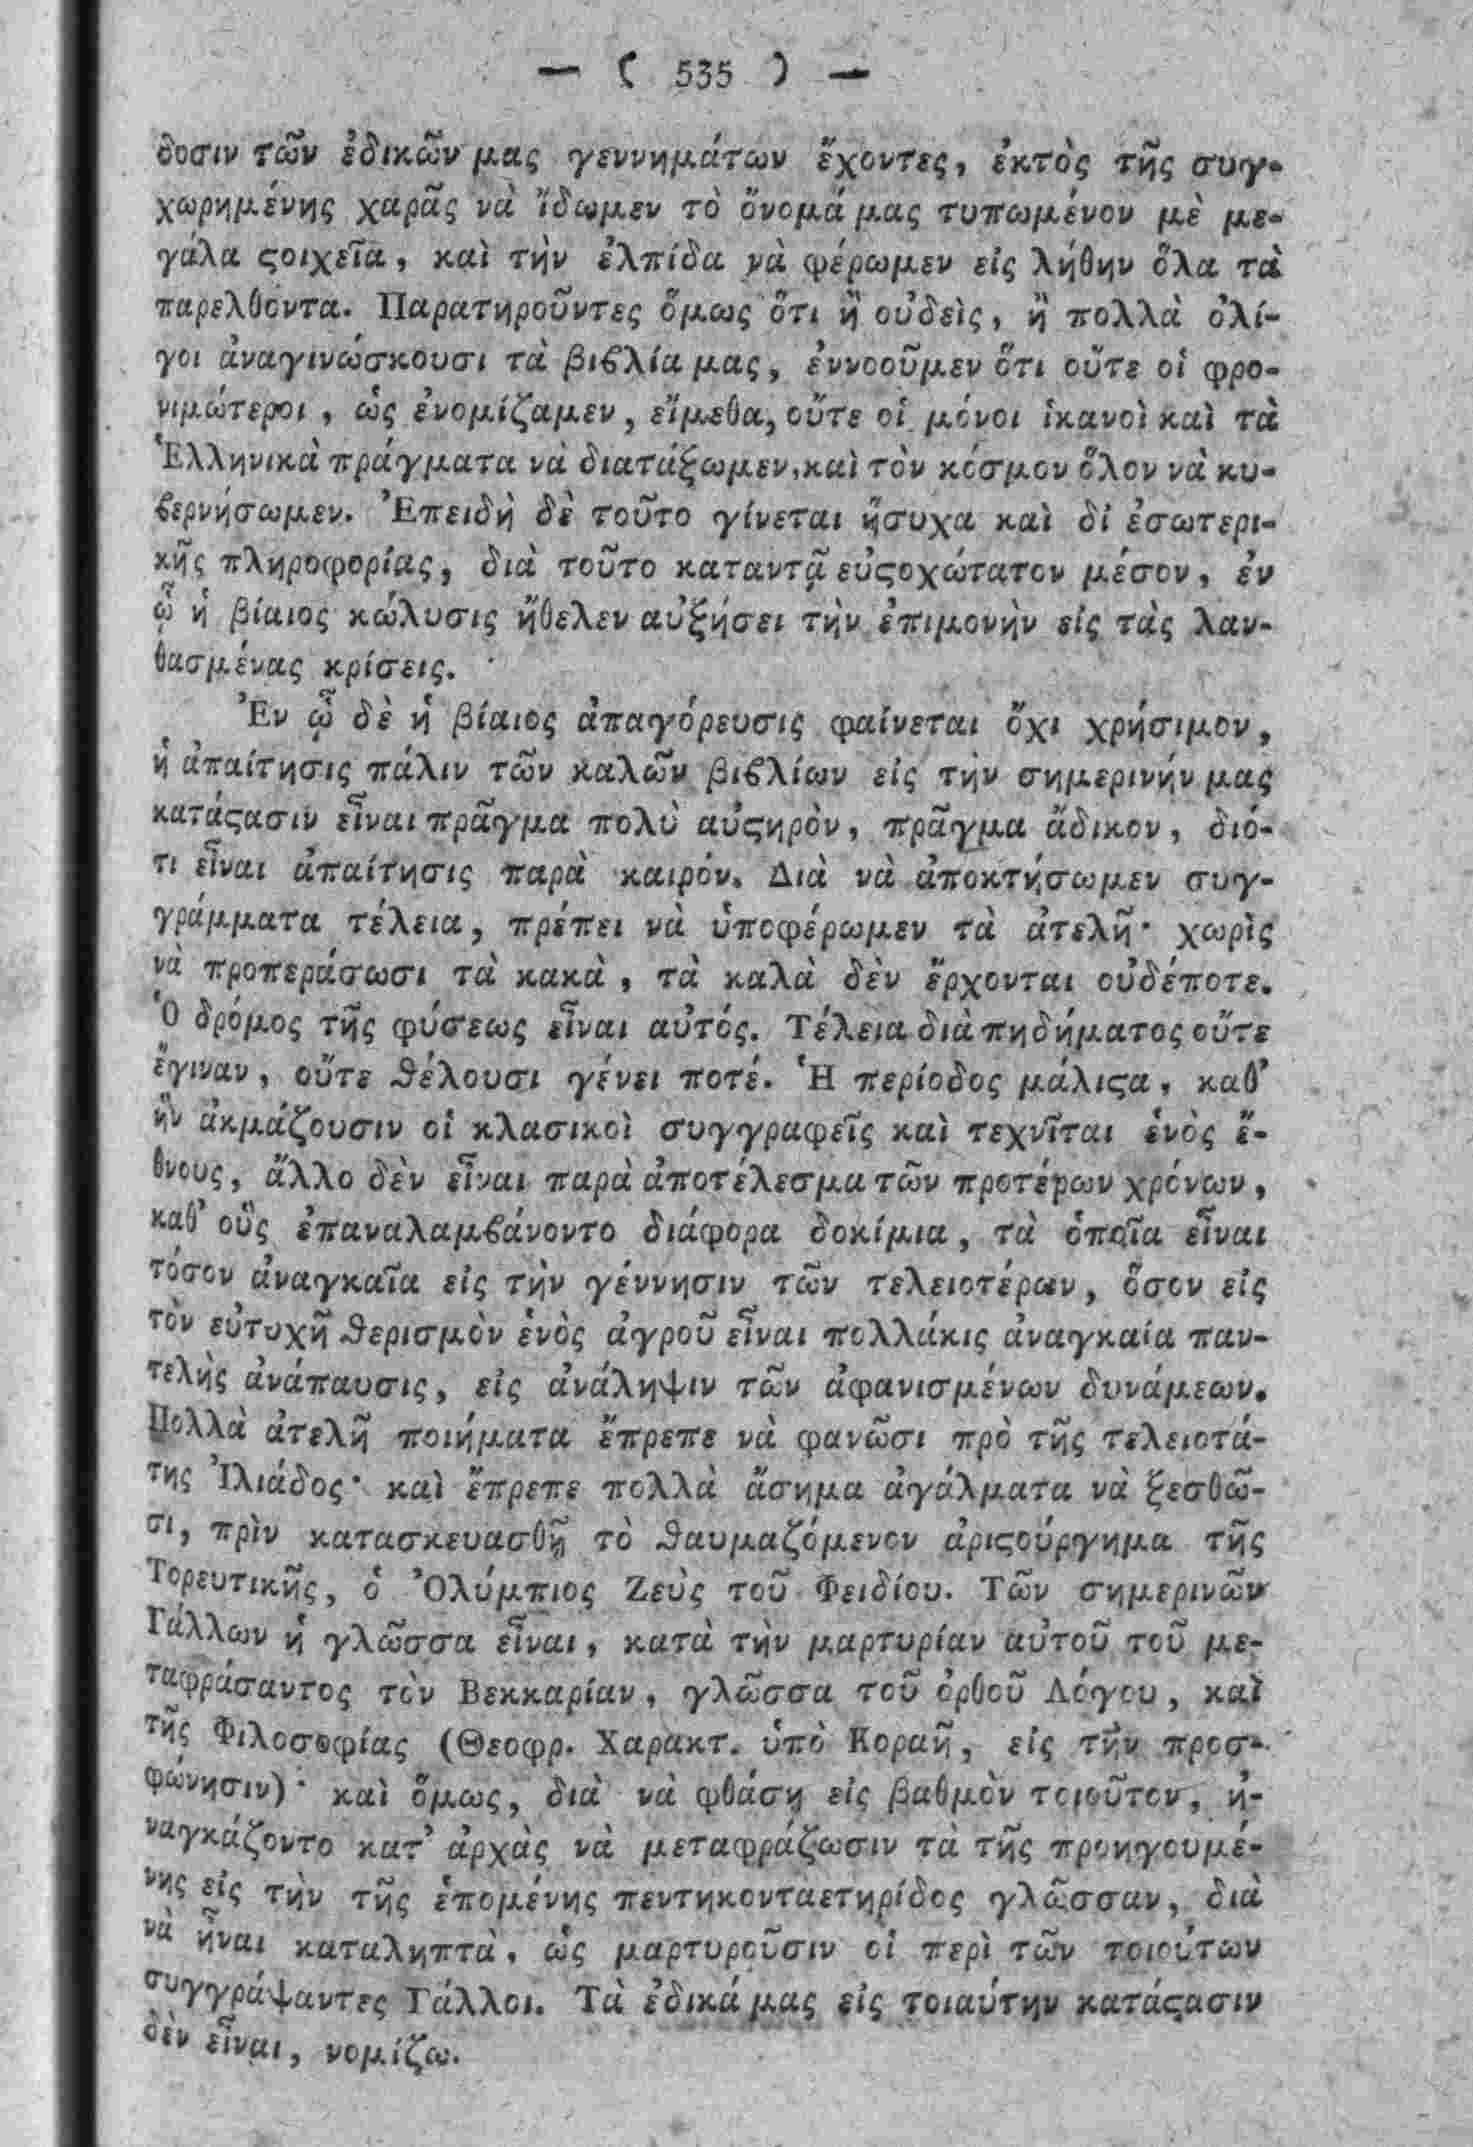 — ( 535 ) —
δοσιν τῶν ἐδικῶν μας γεννημάτων ἔχοντες, ἐκτὸς τῆς συγ-
χωρημένης χαρᾶς νὰ ἴδωμεν τὸ ὄνομά μας τυπωμένον μὲ με-
γάλα ϛοιχεῖα, καὶ τὴν ἐλπίδα νὰ φέρωμεν εἰς λήθην ὅλα τὰ
παρελθόντα. Παρατηροῦντες ὅμως ὅτι ἢ οὐδεὶς, ἢ πολλὰ ὀλί-
γοι ἀναγινώσκουσι τὰ βιβλία μας, ἐννοοῦμεν ὅτι οὔτε οἱ φρο-
νιμώτεροι, ὡς ἐνομίζαμεν, εἴμεθα, οὔτε οἱ μόνοι ἱκανοὶ καὶ τὰ
Ἑλληνικὰ πράγματα νὰ διατάξωμεν, καὶ τὸν κόσμον ὅλον νὰ κυ-
βερνήσωμεν. Ἐπειδὴ δὲ τοῦτο γίνεται ἥσυχα καὶ δί ἐσωτερι-
κῆς πληροφορίας, διὰ τοῦτο καταντᾷ εὐϛοχώτατον μέσον, ἐν
ᾧ ἡ βίαιος κώλυσις ἤθελεν αὐξήσει τὴν ἐπιμονὴν εἰς τὰς λαν-
θασμένας κρίσεις.
Ἐν ᾧ δὲ ἡ βίαιος ἀπαγόρευσις φαίνεται ὄχι χρήσιμον,
ἡ ἀπαίτησις πάλιν τῶν καλῶν βιβλίων εἰς τὴν σημερινήν μας
κατάϛασιν εἶναι πρᾶγμα πολὺ αὐϛηρὸν, πρᾶγμα ἄδικον, διό-
τι εἶναι ἀπαίτησις παρὰ καιρόν. Διὰ νὰ ἀποκτήσωμεν συγ-
γράμματα τέλεια, πρέπει νὰ ὑποφέρωμεν τὰ ἀτελῆ· χωρὶς
νὰ προπεράσωσι τὰ κακὰ, τὰ καλὰ δὲν ἔρχονται οὐδέποτε.
Ὁ δρόμος τῆς φύσεως εἶναι αὐτός. Τέλεια διὰ πηδήματος οὔτε
ἔγιναν, οὔτε θέλουσι γένει ποτέ. Ἡ περίοδος μάλιϛα, καθ’
ἣν ἀκμάζουσιν οἱ κλασικοὶ συγγραφεῖς καὶ τεχνῖται ἑνὸς ἔ-
θνους, ἄλλο δὲν εἶναι παρὰ ἀποτέλεσμα τῶν προτέρων χρόνων,
καθ’ οὓς ἐπαναλαμβάνοντο διάφορα δοκίμια, τὰ ὁποῖα εἶναι
τόσον ἀναγκαῖα εἰς τὴν γέννησιν τῶν τελειοτέρων, ὅσον εἰς
τὸν εὐτυχῆ θερισμὸν ἑνὸς ἀγροῦ εἶναι πολλάκις ἀναγκαία παν-
τελὴς ἀνάπαυσις, εἰς ἀνάληψιν τῶν ἀφανισμένων δυνάμεων.
Πολλὰ ἀτελῆ ποιήματα ἔπρεπε νὰ φανῶσι πρὸ τῆς τελειοτά-
της Ἰλιάδος· καὶ ἔπρεπε πολλὰ ἄσημα ἀγάλματα νὰ ξεσθῶ-
σι, πρὶν κατασκευασθῇ τὸ θαυμαζόμενον ἀριϛούργημα τῆς
Τορευτικῆς, ὁ Ὀλύμπιος Ζεὺς τοῦ Φειδίου. Τῶν σημερινῶν
Γάλλων ἡ γλῶσσα εἶναι, κατὰ τὴν μαρτυρίαν αὐτοῦ τοῦ με-
ταφράσαντος τὸν Βεκκαρίαν, γλῶσσα τοῦ ὀρθοῦ Λόγου, καὶ
τῆς Φιλοσοφίας (Θεοφρ. Χαρακτ. ὑπὸ Κοραῆ, εἰς τὴν προσ-
φώνησιν)· καὶ ὅμως, διὰ νὰ φθάσῃ εἰς βαθμὸν τοιοῦτον, ἠ-
ναγκάζοντο κατ’ ἀρχὰς νὰ μεταφράζωσιν τὰ τῆς προηγουμέ-
νης εἰς τὴν τῆς ἑπομένης πεντηκονταετηρίδος γλῶσσαν, διὰ
νὰ ἦναι καταληπτὰ, ὡς μαρτυροῦσιν οἱ περὶ τῶν τοιούτων
συγγράψαντες Γάλλοι. Τὰ ἐδικά μας εἰς τοιαύτην κατάϛασιν
δὲν εἶναι, νομίζω.